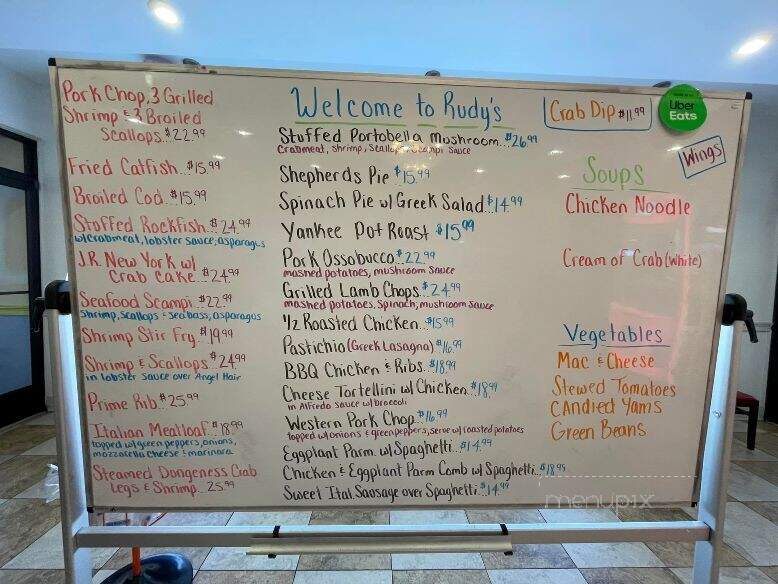 Pork Chop, 3 Grilled
Shrimp & 3 Broiled
Scallops..$22.99
Fried Catfish..$15.99
Broiled Cod..$15.99
Stuffed Rockfish..$24.99
w/crabmeat, lobster sauce, asparagus
J.R. New York w/
Crab Cake..$24.99
Seafood Scampi..$22.99
Shrimp, scallops & sea bass, asparagus
Shrimp Stir Fry..$19.99
Shrimp & Scallops..$24.99
in lobster sauce over Angel Hair
Prime Rib..$25.99
Italian Meatloaf..$18.99
topped w/green peppers, onions,
mozzarella cheese & marinara
Steamed Dongeness Crab
Legs & Shrimp...25.99
Welcome to Rudy's
Stuffed Portobella Mushroom..$26.99
Crabmeat, shrimp, Scallops, Scampi Sauce
Shepherds Pie $15.99
Spinach Pie w/ Greek Salad..$14.99
Yankee Pot Roast $15.99
Pork Ossobucco..$22.99
mashed potatoes, mushroom sauce
Grilled Lamb Chops..$24.99
mashed potatoes, Spinach, mushroom sauce
1/2 Roasted Chicken..$15.99
Pastichio (Greek Lasagna) $16.99
BBQ Chicken & Ribs..$18.99
Cheese Tortellini w/ Chicken..$18.99
in Alfredo sauce w/broccoli
Western Pork Chop..$16.99
topped w/onions & green peppers, serve w/ roasted potatoes
Eggplant Parm. w/ Spaghetti..$14.99
Chicken & Eggplant Parm Comb w/ Spaghetti..$18.99
Sweet Ital. Sausage over Spaghetti..$14.99
Crab Dip $11.99
Uber
Eats
Wings
Soups
Chicken Noodle
Cream of Crab (White)
Vegetables
Mac & Cheese
Stewed Tomatoes
CAndied Yams
Green Beans
menupix